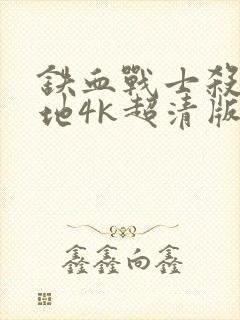 鉄血戰士殺
地4K超清版
鑫鑫向鑫